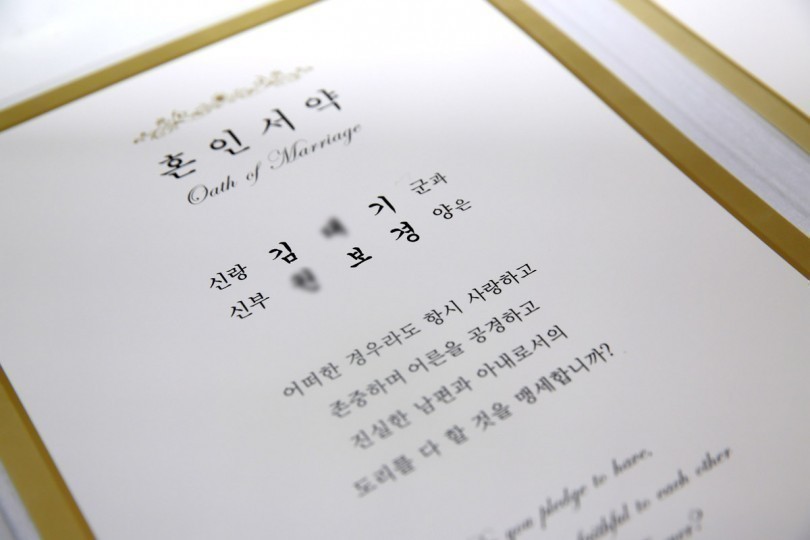 혼인서약
Oath of Marriage
신랑 김 기 군과
신부 보경 양은
어떠한 경우라도 항시 사랑하고
존중하며 어른을 공경하고
진실한 남편과 아내로서의
도리를 다 할 것을 맹세합니까?
you pledge to have,
faithful to each other